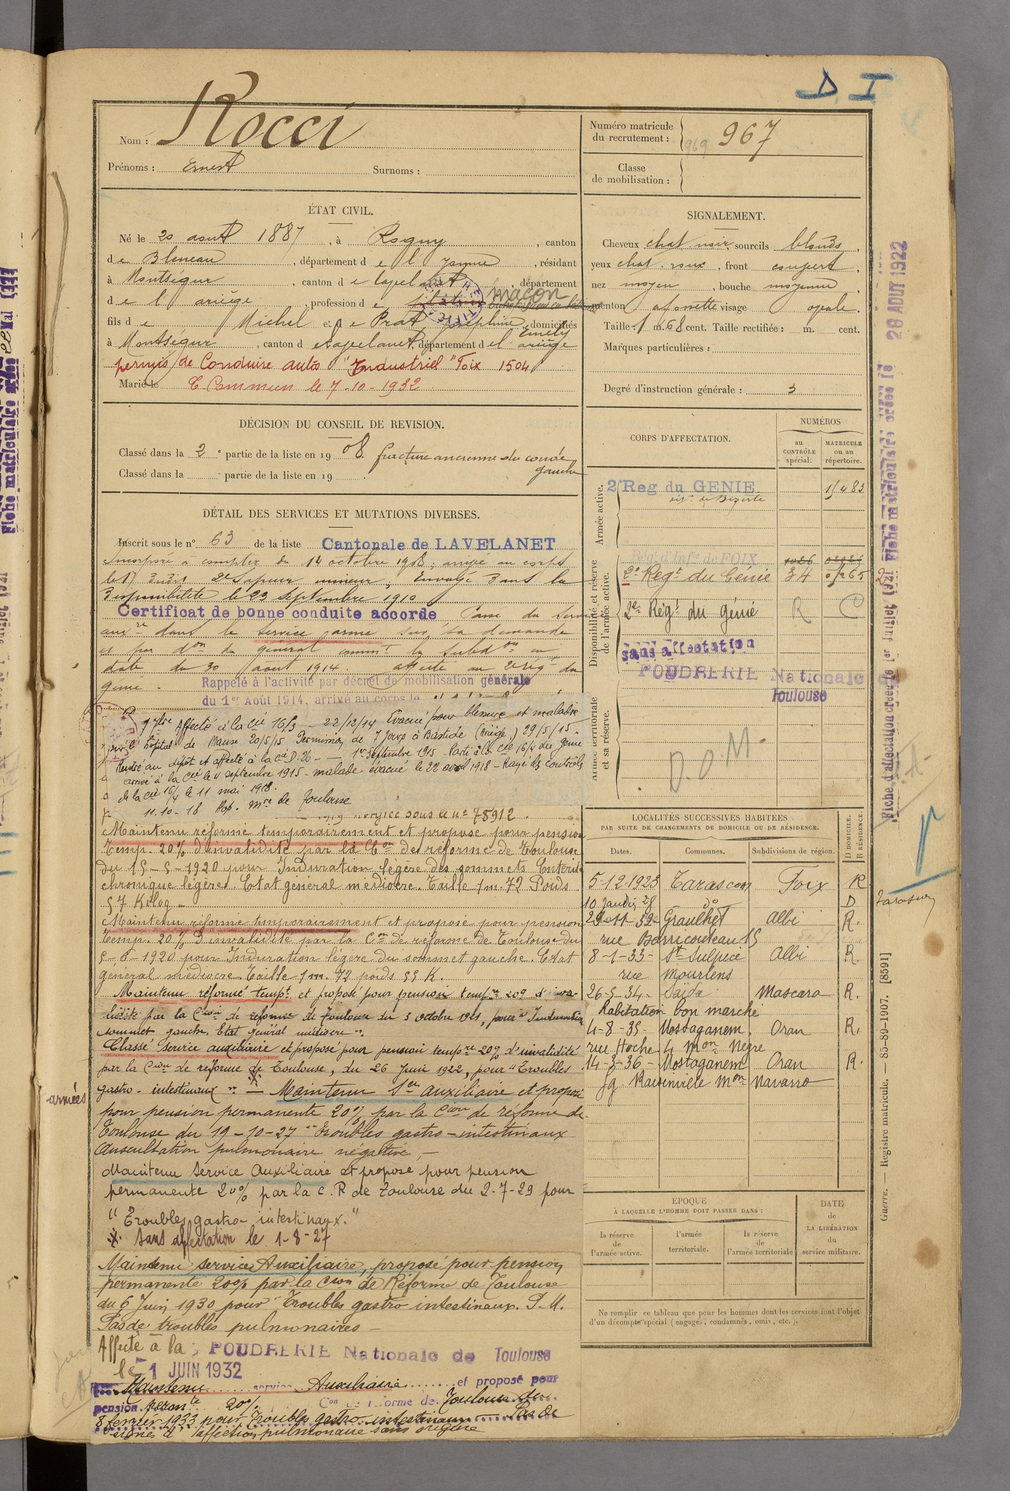 D I
Nom : Rocci
Prénoms : Ernest Surnoms :
Numéro matricule du recrutement : 969 967
Classe de mobilisation :
ÉTAT CIVIL.
Né le 20 août 1887, à Rogny, canton
de Bleneau, département de l'Yonne, résidant
à Montségur, canton de Lavelanet, département
de l'ariège, profession de maçon
fils de Michel et de Prat Joséphine Emély domiciliés
à Montségur, canton de Lavelanet, département de l'ariège
permis de Conduire auto "Industriel" Foix 1504
Marié le T. Commun le 7-10-1932
SIGNALEMENT.
Cheveux chat. noir, sourcils blonds,
yeux chat. roux, front couvert,
nez moyen, bouche moyenne,
menton à fossette visage ovale.
Taille 1 m. 68 cent. Taille rectifiée : m. cent.
Marques particulières :
Degré d'instruction générale : 3
DÉCISION DU CONSEIL DE REVISION.
Classé dans la 2e partie de la liste en 1908. fracture ancienne du coude gauche
Classé dans la partie de la liste en 19
DÉTAIL DES SERVICES ET MUTATIONS DIVERSES.
Inscrit sous le n° 63 de la liste Cantonale de LAVELANET
Incorporé à compter du 14 octobre 1908, arrivé au corps
le dit jour 2e sapeur mineur, Envoyé dans la
disponibilité le 23 septembre 1910
Certificat de bonne conduite accordé
dans le service armé sur sa demande
et par don du général commt la Subdon en
date du 30 août 1914. affecté au 2e rég. du
génie.
Rappelé à l'activité par décret de mobilisation générale
du 1er Août 1914, arrivé au corps le
Affecté à la Cie 16/3 - 22/12/14 Evacué pour blessure et maladie
sur l'hôpital de Nause 20/5/15 Permission de 7 jours à Bastide (Ariège) 29/5/15 -
Rentré au dépôt et affecté à la Cie D.26 - 1er Septembre 1915 - Parti à la Cie 16/4 du génie
arrivé à la Cie le 4 septembre 1915 - malade évacué le 22 avril 1918 - Rayé des contrôles
de la Cie 16/4 le 11 mai 1918.
11.10-18 Hôp. Mre de Toulouse
sous le n° 78912.
Maintenu réformé temporairement et proposé pour pension
Temp. 20% d'invalidité par la Con de réforme de Toulouse
du 15-5-1920 pour Induration légère des sommets Entérite
chronique légère. Etat général médiocre. Taille 1m.72 Poids
57 Kilog -
Maintenu réformé temporairement et proposé pour pension
temp. 20% d'invalidité par la Con de réforme de Toulouse du
5-8-1920 pour Induration légère du sommet gauche. Etat
général médiocre. Taille 1m.72 poids 55 K.
Maintenu réformé tempt et proposé pour pension tempre 20% d'inva-
lidité par la Cion de réforme de Toulouse du 5 octobre 1921, pour "Induration
sommet gauche Etat général médiocre".
Classé Service auxiliaire et proposé pour pension tempre 20% d'invalidité
par la Cion de réforme de Toulouse, du 26 Juin 1922, pour "Troubles
gastro-intestinaux". - Maintenu Ser auxiliaire et proposé
pour pension permanente 20% par la Cion de réforme de
Toulouse du 19-10-27 "Troubles gastro-intestinaux
Auscultation pulmonaire négative. -
Maintenu Service Auxiliaire et proposé pour pension
permanente 20% par la C.R de Toulouse du 2-7-29 pour
"Troubles gastro-intestinaux."
* Sans affectation le 1-8-27
Maintenu service Auxiliaire, proposé pour pension
permanente 20% par la Cion de Réforme de Toulouse
du 6 Juin 1930 pour "Troubles gastro intestinaux. S.M.
Pas de troubles pulmonaires -
Affecté à la POUDRERIE Nationale de Toulouse
le -1 JUIN 1932
Maintenu service Auxiliaire et proposé pour
pension permte 20% Con de réforme de Toulouse du
8 février 1933 pour Troubles gastro intestinaux Pas de
signes d'affection pulmonaire sans origine
CORPS D'AFFECTATION.
NUMÉROS
au CONTRÔLE spécial.
MATRICULE ou au répertoire.
Armée active.
2e Reg du GENIE 15483
dét. de Bizerte
Disponibilité et réserve de l'armée active.
Rég. d'Infie de FOIX
2e Regt du Génie 34
2e Régt du génie R C
sans affectation
POUDRERIE Nationale de
Toulouse
Armée territoriale et sa réserve.
D.O.M.
LOCALITÉS SUCCESSIVES HABITÉES
PAR SUITE DE CHANGEMENTS DE DOMICILE OU DE RÉSIDENCE.
Dates. Communes. Subdivisions de région. D DOMICILE. R RÉSIDENCE.
5-12-1923 Tarascon Foix R
10 Janvier 28 do D
29-11-32 Graulhet Albi R.
rue Barricouteau 15
8-1-33- St Sulpice Albi R.
rue Mourlens
26-5-34- Saïda Mascara R.
Habitation bon marché
4-8-35- Mostaganem Oran R.
rue Hoche 4 Mon Negre
14-3-36- Mostaganem Oran R.
fg. Raverviele Mon Navarro
EPOQUE
À LAQUELLE L'HOMME DOIT PASSER DANS :
la réserve de l'armée active.
l'armée territoriale.
la réserve de l'armée territoriale
DATE de LA LIBÉRATION du service militaire.
Ne remplir ce tableau que pour les hommes dont les services font l'objet
d'un décompte spécial (engagés, condamnés, omis, etc.).
Guerre. — Registre matricule. — 85-89-1907. [8591]
28 AOUT 1922
Tarascon
armées